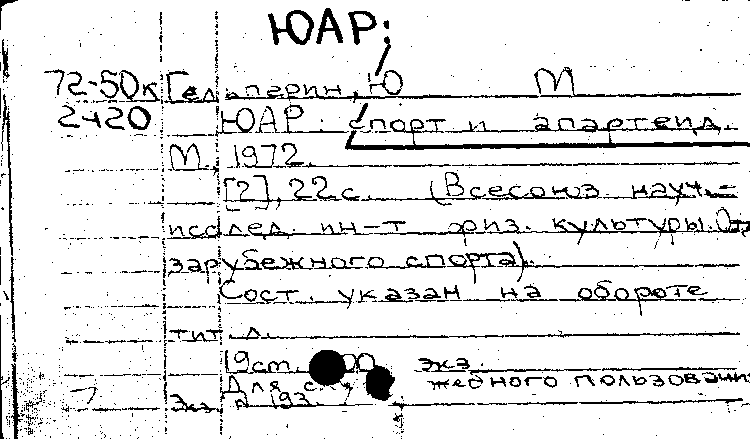 ЮАР:
72-50к Гельперин, Ю М
2420 ЮАР: спорт и апартеид.
М., 1972.
[2], 22 с. (Всесоюз. науч.-
исслед. ин-т физ. культуры. Отд
зарубежного спорта).
Сост. указан на обороте
тит. л.
19 см. 00 экз.
Для с жебного пользования
Экз. 193.